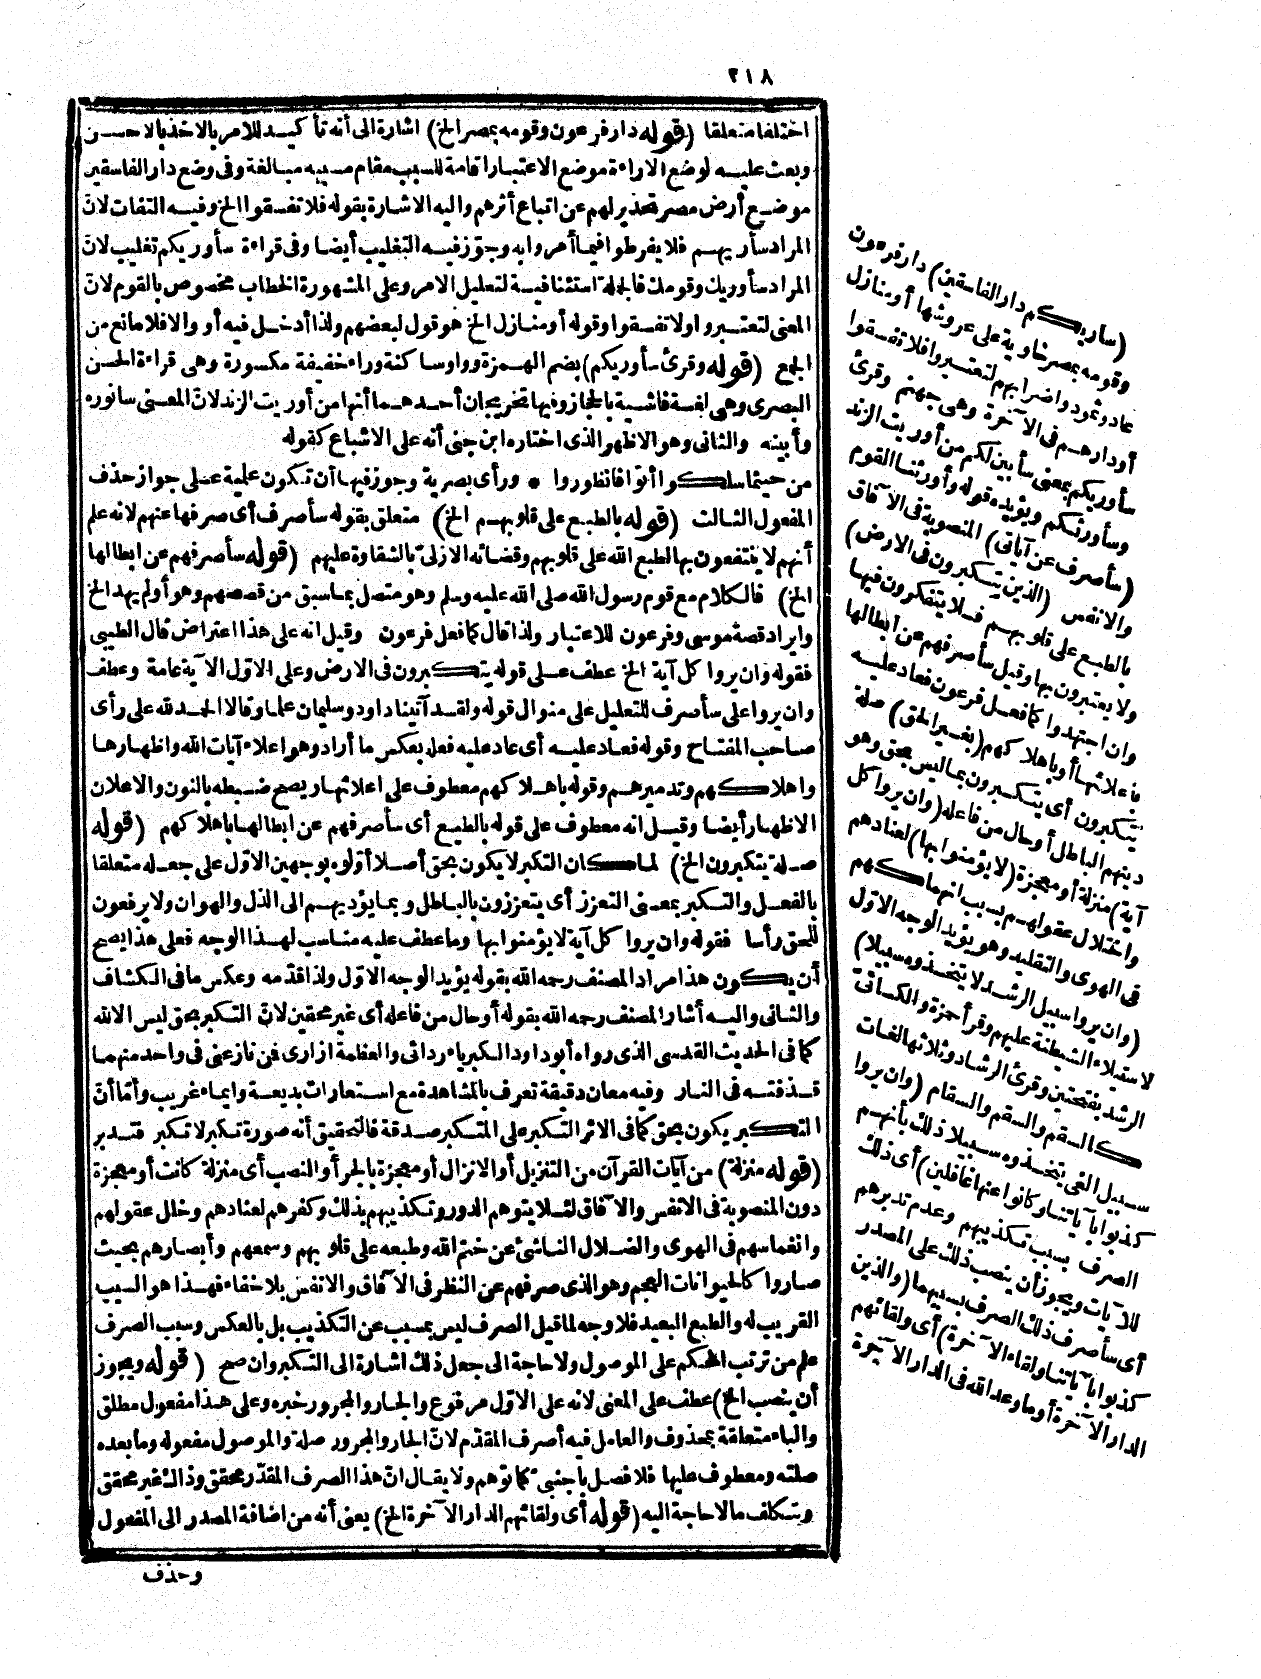 ٢١٨
اختلفا متعلقا (قوله دار فرعون وقومه بمصر الخ) اشارة الى أنه تأكيد للامر بالاخذ بالاحسن
وبعث عليه لوضع الاراءة موضع الاعتبار اقامة للسبب مقام مسببه مبالغة وفى وضع دار الفاسقين
موضع أرض مصر تحذير لهم عن اتباع أثرهم واليه الاشارة بقوله فلا تفسقوا الخ وفيه التفات لانّ
المراد سأريهم فلا يفرطوا فيما أمروا به وجوّز فيه التغليب أيضا وفى قراءة سأوريكم تغليب لانّ
المراد سأوريك وقومك فالجملة استئنافية لتعليل الامر وعلى المشهورة الخطاب مخصوص بالقوم لانّ
المعنى لتعتبروا ولا تفسقوا وقوله أو منازل الخ هو قول لبعضهم ولذا أدخل فيه أو والا فلا مانع من
الجمع (قوله وقرئ سأوريكم) بضم الهمزة وواو ساكنة وراء خفيفة مكسورة وهى قراءة الحسن
البصرى وهى لغة فاشية بالحجاز وفيها تخريجان أحدهما أنها من أوريت الزند لانّ المعنى سأنوره
وأبينه والثانى وهو الاظهر الذى اختاره ابن جنى أنه على الاشباع كقوله
من حيثما سلكوا أثوا فانظوروا * ورأى بصرية وجوز فيها أن تكون علمية على جواز حذف
المفعول الثالث (قوله بالطبع على قلوبهم الخ) متعلق بقوله سأصرف أى صرفها عنهم لانه علم
أنهم لا ينتفعون بها لطبع الله على قلوبهم وقضائه الازلىّ بالشقاوة عليهم (قوله سأصرفهم عن ابطالها
الخ) فالكلام مع قوم رسول الله صلى الله عليه وسلم وهو متصل بما سبق من قصصهم وهو أولم يهد الخ
وايراد قصة موسى وفرعون للاعتبار ولذا قال كما فعل فرعون وقيل انه على هذا اعتراض قال الطيبى
فقوله وان يروا كل آية الخ عطف على قوله يتكبرون فى الارض وعلى الاوّل الآية عامة وعطف
وان يروا على سأصرف للتعليل على منوال قوله ولقد آتينا داود وسليمان علما وقالا الحمد لله على رأى
صاحب المفتاح وقوله فعاد عليه أى عاد عليه فعله بعكس ما أراد وهو اعلاء آيات الله واظهارها
واهلاكهم وتدميرهم وقوله باهلاكهم معطوف على اعلائها ريصح ضبطه بالنون والاعلان
الاظهار أيضا وقيل انه معطوف على قوله بالطبع أى سأصرفهم عن ابطالها باهلاكهم (قوله
صلة يتكبرون الخ) لما كان التكبر لا يكون بحق أصلا أوّلوه بوجهين الاوّل على جعله متعلقا
بالفعل والتكبر بمعنى التعزز أى يتعززون بالباطل وبما يؤديهم الى الذل والهوان ولا يرفعون
للحق رأسا فقوله وان يروا كل آية لا يؤمنوا بها وما عطف عليه مناسب لهذا الوجه فعلى هذا يصح
أن يكون هذا مراد المصنف رحمه الله بقوله يؤيد الوجه الاوّل ولذا قدّمه وعكس ما فى الكشاف
والثانى واليه أشار المصنف رحمه الله بقوله أو حال من فاعله أى غير محقين لانّ التكبر بحق ليس الا لله
كما فى الحديث القدسى الذى رواه أبو داود الكبرياء ردائى والعظمة ازارى فمن نازعنى فى واحد منهما
قذفته فى النار وفيه معان دقيقة تعرف بالمشاهدة مع استعارات بديعة وايماء غريب وأمّا أنّ
التكبر يكون بحق كما فى الاثر التكبر على المتكبر صدقة فالتحقيق أنه صورة تكبر لا تكبر فتدبر
(قوله منزلة) من آيات القرآن من التنزيل أو الانزال أو معجزة بالجر أو النصب أى منزلة كانت أو معجزة
دون المنصوبة فى الانفس والآفاق لئلا يتوهم الدور وتكذيبهم بذلك وكفرهم لعنادهم وخلل عقولهم
وانغماسهم فى الهوى والضلال الناشئ عن ختم الله وطبعه على قلوبهم وسمعهم وأبصارهم بحيث
صاروا كالحيوانات العجم وهو الذى صرفهم عن النظر فى الآفاق والانفس بلا خفاء فهذا هو السبب
القريب له والطبع البعيد فلا وجه لما قيل الصرف ليس بمسبب عن التكذيب بل بالعكس وسبب الصرف
علم من ترتب الحكم على الموصول ولا حاجة الى جعل ذلك اشارة الى التكبر وان صح (قوله ويجوز
أن ينصب الخ) عطف على المعنى لانه على الاوّل مرفوع والجار والمجرور خبره وعلى هذا مفعول مطلق
والباء متعلقة بمحذوف والعامل فيه أصرف المقدّم لانّ الجار والمجرور صلة والموصول مفعوله وما بعده
صلته ومعطوف عليها فلا فصل بأجنبىّ كما توهم ولا يقال انّ هذا الصرف المقدّر محقق وذاك غير محقق
وتتكلف ما لا حاجة اليه (قوله أى ولقائهم الدار الآخرة الخ) يعنى أنه من اضافة المصدر الى المفعول
وحذف
(سأريكم دار الفاسقين) دار فرعون
وقومه بمصر خاوية على عروشها أو منازل
عاد وثمود وأضرابهم لتعتبروا فلا تفسقوا
أو دارهم فى الآخرة وهى جهنم وقرئ
سأوريكم بمعنى سأبين لكم من أوريت الزند
وسأورثكم ويؤيده قوله وأورثنا القوم
(سأصرف عن آياتى) المنصوبة فى الآفاق
والانفس (الذين يتكبرون فى الارض)
بالطبع على قلوبهم فلا يتفكرون فيها
ولا يعتبرون بها وقيل سأصرفهم عن ابطالها
وان اجتهدوا كما فعل فرعون فعاد عليه
باعلائها أو باهلاكهم (بغير الحق) صلة
يتكبرون أى يتكبرون بما ليس بحق وهو
دينهم الباطل أو حال من فاعله (وان يروا كل
آية) منزلة أو معجزة (لا يؤمنوا بها) لعنادهم
واختلال عقولهم بسبب انهماكهم
فى الهوى والتقليد وهو يؤيد الوجه الاوّل
(وان يروا سبيل الرشد لا يتخذوه سبيلا)
لاستيلاء الشيطنة عليهم وقرأ حمزة والكسائىّ
الرشد بفتحتين وقرئ الرشاد وثلاثتها لغات
كالسقم والسقم والسقام (وان يروا
سبيل الغى يتخذوه سبيلا ذلك بأنهم
كذبوا بآياتنا وكانوا عنها غافلين) أى ذلك
الصرف بسبب تكذيبهم وعدم تدبرهم
للآيات ويجوز أن ينصب ذلك على المصدر
أى سأصرف ذلك الصرف بسببهما (والذين
كذبوا بآياتنا ولقاء الآخرة) أى ولقائهم
الدار الآخرة أو ما وعد الله فى الدار الآخرة